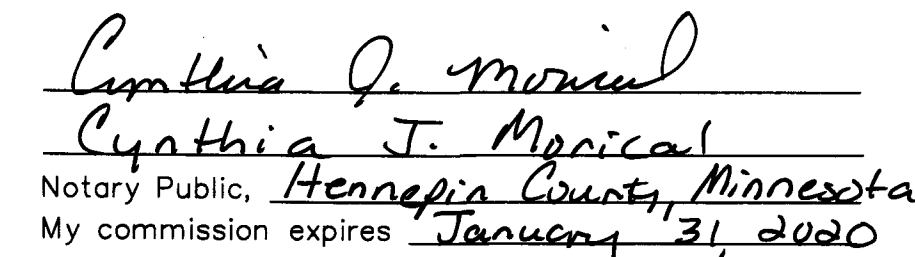 Cynthia J. Morical
Cynthia J. Morical
Notary Public, Hennepin County, Minnesota
My commission expires January 31, 2020